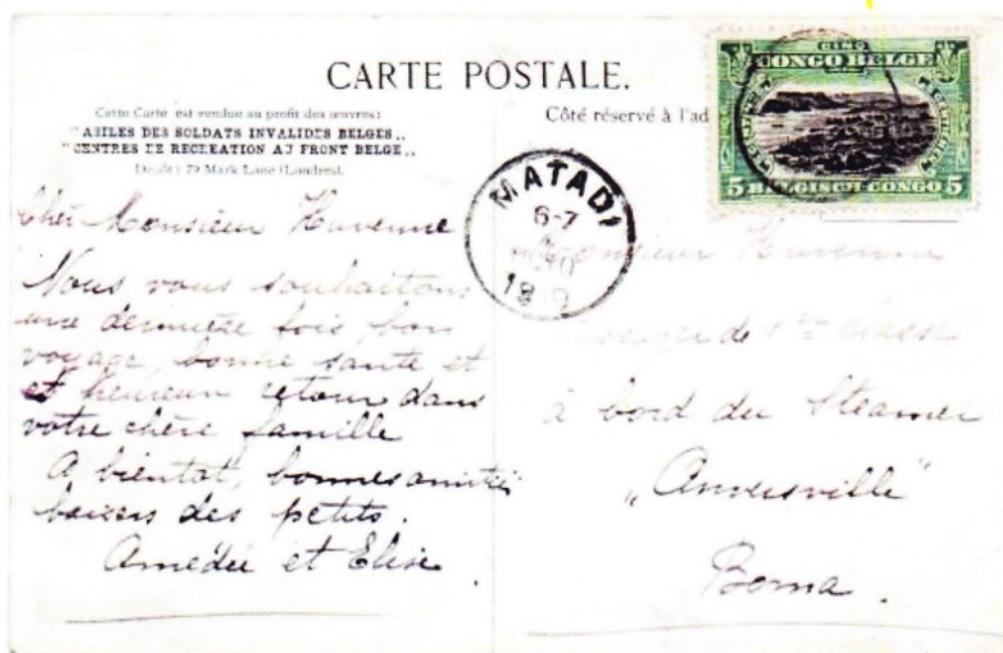 CARTE POSTALE.
Cette Carte est vendue au profit des œuvres:
"ASILES DES SOLDATS INVALIDES BELGES,,
"CENTRES DE RECREATION AU FRONT BELGE,,
79 Mark Lane (Londres).
Côté réservé à l'ad
CINQ
CONGO BELGE
5 BELGISCH-CONGO 5
MATADI
6-7
1919
Cher Monsieur Huvenne
Nous vous souhaitons
une dernière fois, bon
voyage, bonne santé et
et heureux retour dans
votre chère famille
A bientot, bonnes amitiés
baisers des petits.
Amédée et Elise.
Monsieur Huvenne
Passager de 1ère classe
à bord du Steamer
„Anversville"
Boma.